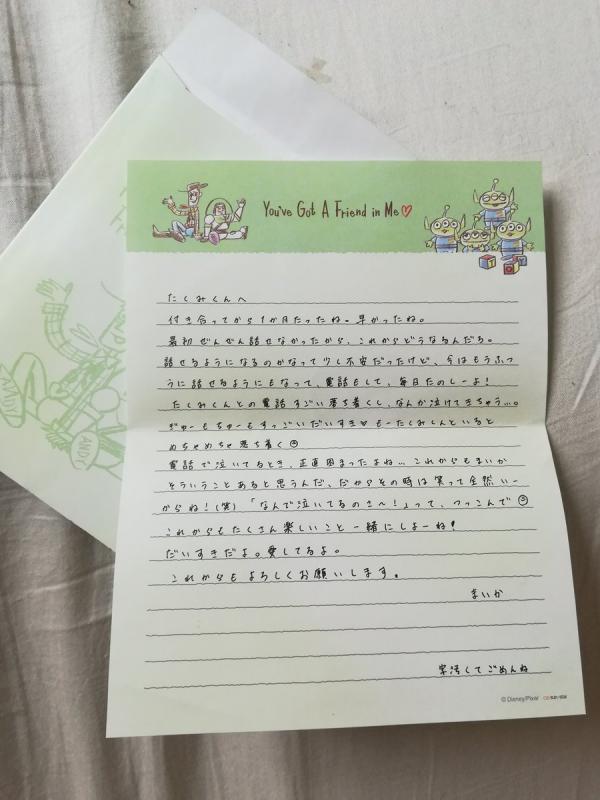 You've Got A Friend in Me♡
たくみくんへ
付き合ってから1か月たったね。早かったね。
最初ぜんぜん話せなかったから、これからどうなるんだろ。
話せるようになるのかなって少し不安だったけど、今はもうふつ
うに話せるようにもなって、電話もして、毎日たのしーよ!
たくみくんとの電話すごい落ち着くし、なんか泣けてきちゃう…。
ぎゅーもちゅーもすっごいだいすき♡もーたくみくんといると
めちゃめちゃ落ち着く☺
電話で泣いてるとき、正直困まったよね… これからもまいか
そういうことあると思うんだ、だからその時は笑って全然いー
からね!(笑)「なんで泣いてるのさ〜!」って、つっこんで☺
これからもたくさん楽しいこと一緒にしよーね!
だいすきだよ。愛してるよ。
これからもよろしくお願いします。
まいか
字汚くてごめんね
© Disney/Pixar
ANDY